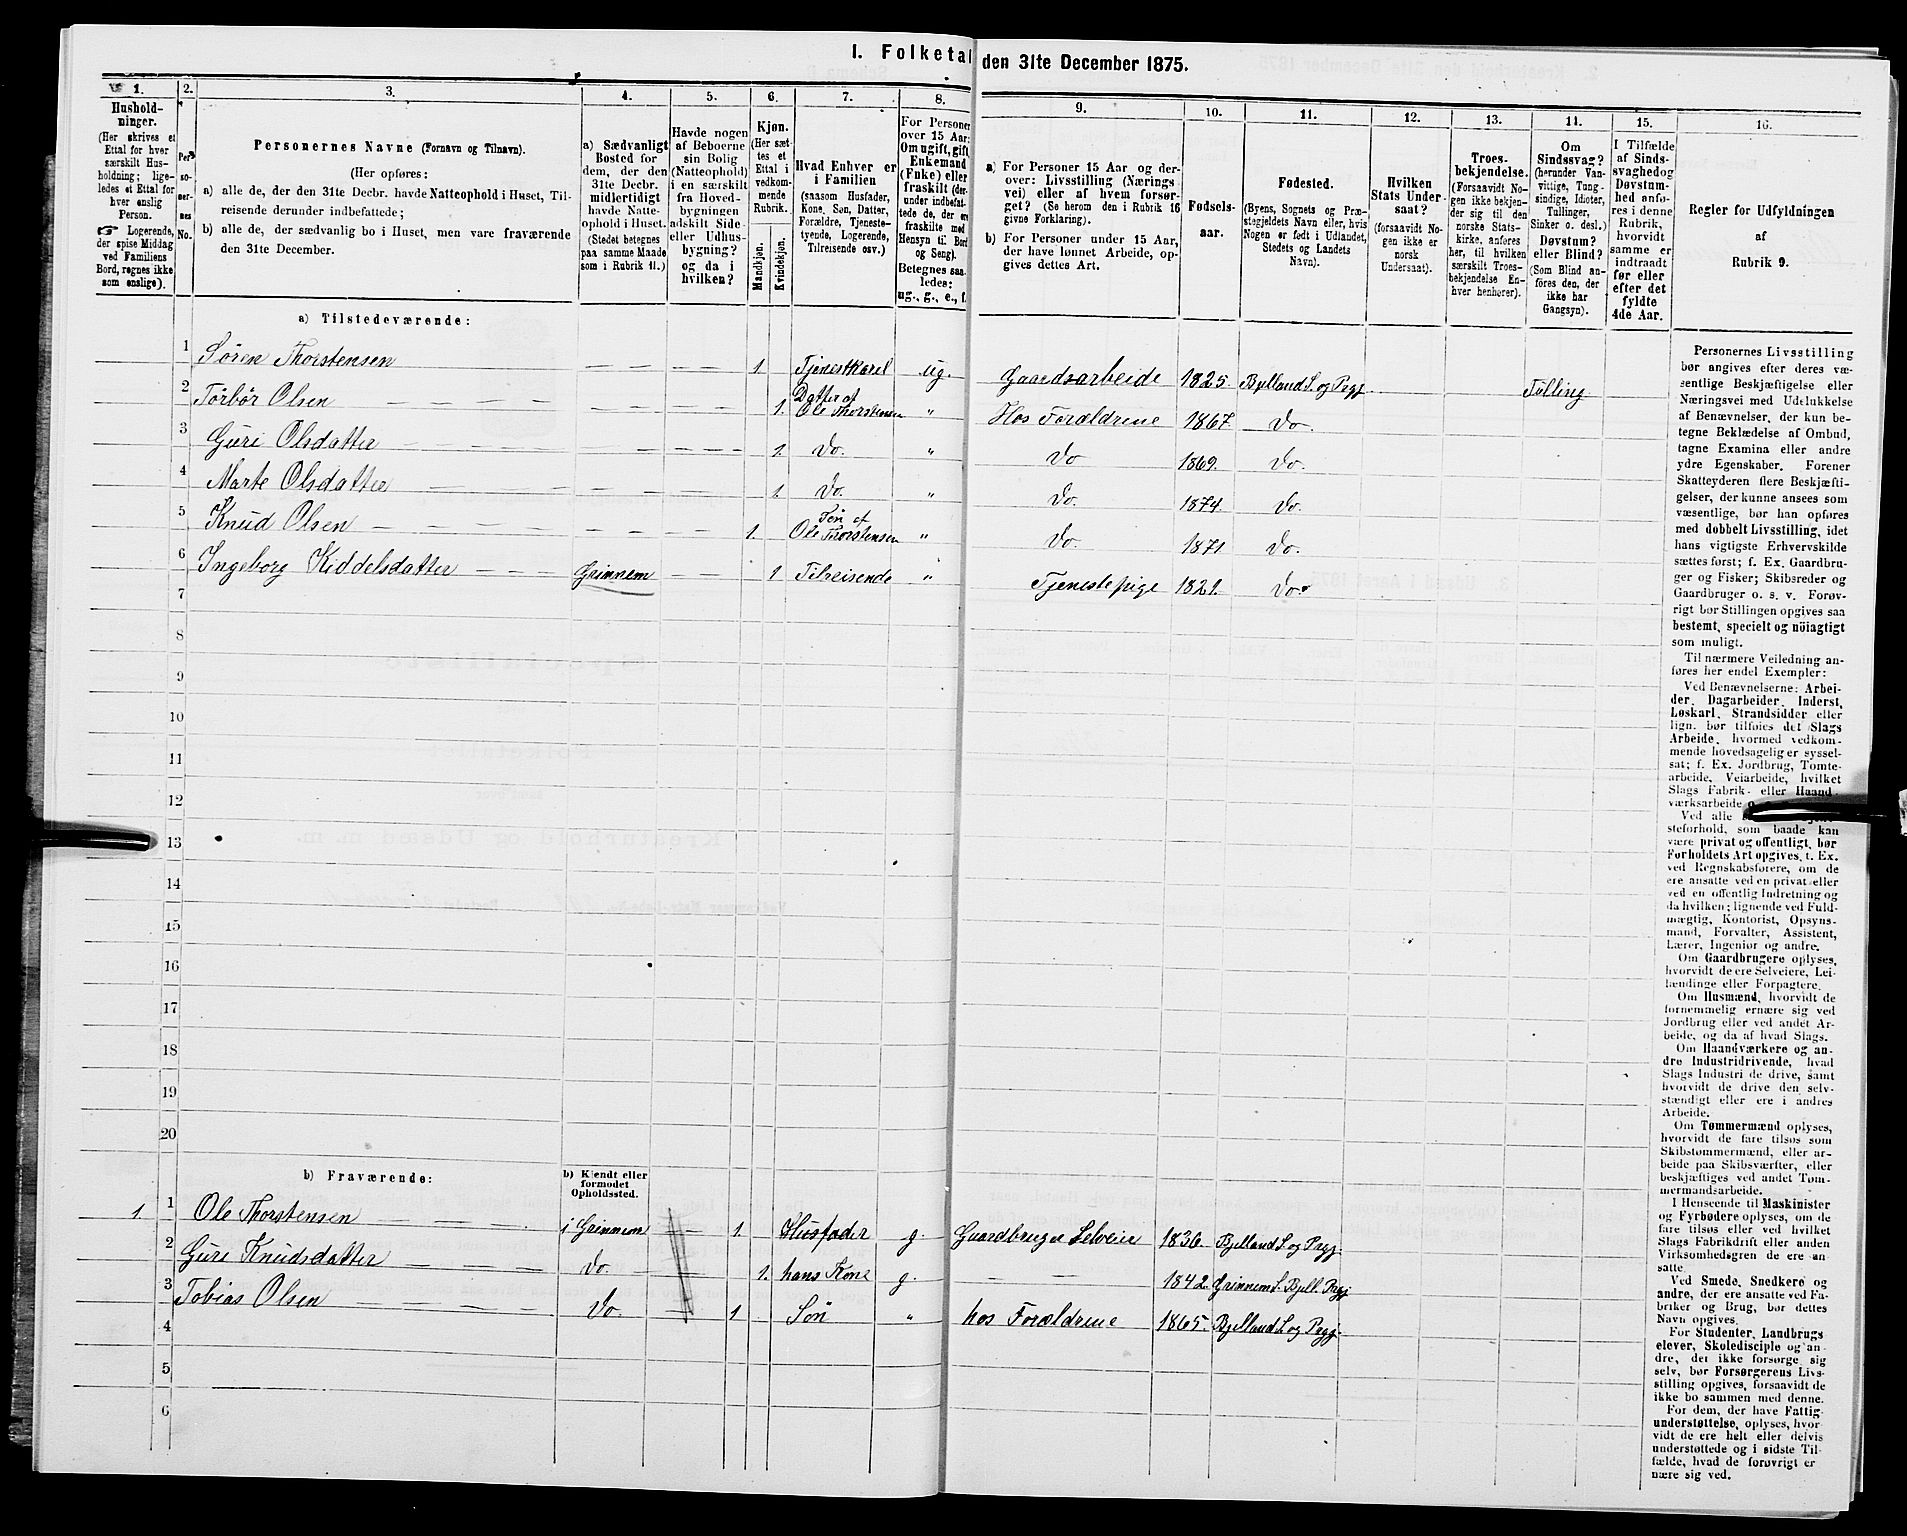 I. Folketal den 31te December 1875.
1.
Hushold-
ninger.
(Her skrives et
Ettal for hver
særskilt Hus-
holdning; lige-
ledes et Ettal for
hver enslig
Person.
☞ Logerende,
der spise Middag
ved Familiens
Bord, regnes ikke
som enslige).
2.
Per-
so-
ner-
nes
No.
3.
Personernes Navne (Fornavn og Tilnavn).
(Her opføres:
a) alle de, der den 31te Decbr. havde Natteophold i Huset, Til-
reisende derunder indbefattede;
b) alle de, der sædvanlig bo i Huset, men vare fraværende
den 31te December.
4.
a) Sædvanligt
Bosted for
dem, der den
31te Decbr.
midlertidigt
havde Natte-
ophold i Huset.
(Stedet betegnes
paa samme Maade
som i Rubrik 11.)
5.
Havde nogen
af Beboerne
sin Bolig
(Natteophold)
i en særskilt
fra Hoved-
bygningen
adskilt Side-
eller Udhus-
bygning?
og da i
hvilken?
6.
Kjøn.
(Her sæt-
tes et
Ettal i
vedkom-
mende
Rubrik.
Mandkjøn.
Kvindekjøn.
7.
Hvad Enhver er
i Familien
(saasom Husfader,
Kone, Søn, Datter,
Forældre, Tjeneste-
tyende, Logerende,
Tilreisende osv.)
8.
For Personer
over 15 Aar:
Om ugift, gift,
Enkemand
(Enke) eller
fraskilt (der-
under indbefat-
tede de, der ere
fraskilte med
Hensyn til Bord
og Seng).
Betegnes saa-
ledes:
ug., g., e., f.
9.
a) For Personer 15 Aar og der-
over: Livsstilling (Nærings-
vei) eller af hvem forsør-
get? (Se herom den i Rubrik 16
givne Forklaring).
b) For Personer under 15 Aar,
der have lønnet Arbeide, op-
gives dettes Art.
10.
Fødsels-
aar.
11.
Fødested.
(Byens, Sognets og Præ-
stegjeldets Navn eller, hvis
Nogen er født i Udlandet,
Stedets og Landets
Navn).
12.
Hvilken
Stats Under-
saat?
(forsaavidt No-
gen ikke er
norsk
Undersaat).
13.
Troes-
bekjendelse.
(Forsaavidt No-
gen ikke bekjen-
der sig til den
norske Stats-
kirke, anføres
her, til hvilken
særskilt Troes-
bekjendelse En-
hver henhører).
14.
Om
Sindssvag?
(herunder Van-
vittige, Tung-
sindige, Idioter,
Tullinger,
Sinker o. desl.)
Døvstum?
eller Blind?
(Som Blind an-
føres den, der
ikke har
Gangsyn).
15.
I Tilfælde
af Sinds-
svaghed og
Døvstum-
hed anfø-
res i denne
Rubrik,
hvorvidt
samme er
indtraadt
før eller
efter det
fyldte
4de Aar.
16.
Regler for Udfyldningen
af
Rubrik 9.
a) Tilstedeværende:
1 Søren Thorstensen — — — — 1. Tjenestkarl ug. Gaardsarbeide 1825. Bjelland S. og Pregj. Tulling
2 Torbør Olsen — — — — 1. Datter af Ole Thorstensen " Hos Forældrene 1867. Do.
3 Guri Olsdatter — — — — 1. Do. " Do 1869. Do.
4 Marte Olsdatter — — — — 1. Do. " Do. 1874. Do.
5 Knud Olsen — — — — 1. Søn af Ole Thorstensen " Do. 1871 Do.
6 Ingeborg Kiddelsdatter — — Grinnem — — 1 Tilreisende " Tjenestepige 1821. Do.
7
8
9
10
11
12
13
14
15
16
17
18
19
20
b) Fraværende:
b) Kjendt eller
formodet
Opholdssted.
1. 1 Ole Thorstensen — — — i Grinnem — 1. Husfader g. Gaardbruger Selveier 1836. Bjelland S. og Pregj.
2 Guri Knudsdatter — — Do. — 1. hans Kone g. — — 1842. Grinnem S. Bjell. Pregj
3 Tobias Olsen — — — Do — 1 Søn " hos Forældrene 1865. Bjelland S. og Pregj.
4
5
6
Personernes Livsstilling
bør angives efter deres væ-
sentlige Beskjæftigelse eller
Næringsvei med Udelukkelse
af Benævnelser, der kun be-
tegne Beklædelse af Ombud,
tagne Examina eller andre
ydre Egenskaber. Forener
Skatteyderen flere Beskjæfti-
gelser, der kunne ansees som
væsentlige, bør han opføres
med dobbelt Livsstilling, idet
hans vigtigste Erhvervskilde
sættes først; f. Ex. Gaardbru-
ger og Fisker; Skibsreder og
Gaardbruger o. s. v. Forøv-
rigt bør Stillingen opgives saa
bestemt, specielt og nöiagtigt
som muligt.
Til nærmere Veiledning an-
føres her endel Exempler:
Ved Benævnelserne: Arbei-
der, Dagarbeider, Inderst,
Løskarl, Strandsidder eller
lign. bør tilføies det Slags
Arbeide, hvormed vedkom-
mende hovedsagelig er syssel-
sat; f. Ex. Jordbrug, Tomte-
arbeide, Veiarbeide, hvilket
Slags Fabrik- eller Haand-
værksarbeide
Ved alle
steforhold, som baade kan
være privat og offentligt, bør
Forholdets Art opgives, t. Ex.
ved Regnskabsførere, om de
ere ansatte ved en privat eller
ved en offentlig Indretning og
da hvilken; lignende ved Fuld-
mægtig, Kontorist, Opsyns-
mand, Forvalter, Assistent,
Lærer, Ingeniør og andre.
Om Gaardbrugere oplyses,
hvorvidt de ere Selveiere, Lei-
lændinge eller Forpagtere.
Om Husmænd, hvorvidt de
fornemmelig ernære sig ved
Jordbrug eller ved andet Ar-
beide, og da af hvad Slags.
Om Haandværkere og an-
dre Industridrivende, hvad
Slags Industri de drive, samt
hvorvidt de drive den selv-
stændigt eller ere i andres
Arbeide.
Om Tømmermænd oplyses,
hvorvidt de fare tilsøs som
Skibstømmermænd, eller ar-
beide paa Skibsværfter, eller
beskjæftiges ved andet Tøm-
mermandsarbeide.
I Henseende til Maskinister
og Fyrbødere oplyses, om de
fare tilsøs eller ved hvilket
Slags Fabrikdrift eller anden
Virksomhedsgren de ere an-
satte.
Ved Smede, Snedkere og
andre, der ere ansatte ved Fa-
briker og Brug, bør dettes
Navn opgives.
For Studenter, Landbrugs-
elever, Skoledisciple og an-
dre, der ikke forsørge sig
selv, bør Forsørgerens Livs-
stilling opgives, forsaavidt de
ikke bo sammen med denne.
For dem, der have Fattig-
understøttelse, oplyses, hvor-
vidt de ere helt eller delvis
understøttede og i sidste Til-
fælde, hvad de forøvrigt er-
nære sig ved.